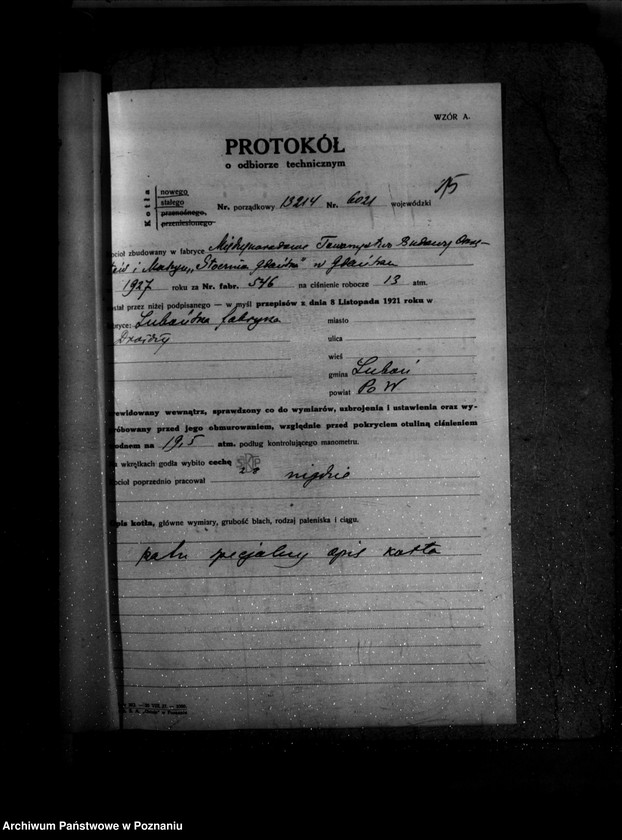 WZÓR A.
PROTOKÓŁ
o odbiorze technicznym
Kotła
nowego
stałego
przenośnego,
przeniesionego
Nr. porządkowy 13214 Nr. 6021 wojewódzki
ocioł zbudowany w fabryce Międzynarodowe Towarzystwo Budowy Okrę-
tów i Maszyn „Stocznia Gdańska" w Gdańsku
1927 roku za Nr. fabr. 546 na ciśnienie robocze 13 atm.
ostał przez niżej podpisanego — w myśl przepisów z dnia 8 Listopada 1921 roku w
bryce: Lubońska fabryka
Drożdży
miasto
ulica
wieś
gmina Luboń
powiat Po W
rewidowany wewnątrz, sprawdzony co do wymiarów, uzbrojenia i ustawienia oraz wy-
róbowany przed jego obmurowaniem, względnie przed pokryciem otuliną ciśnieniem
odnem na 19,5 atm. podług kontrolującego manometru.
a wkrętkach godła wybito cechę
ocioł poprzednio pracował nigdzie
pis kotła, główne wymiary, grubość blach, rodzaj paleniska i ciągu.
patrz specjalny opis kotła
Archiwum Państwowe w Poznaniu